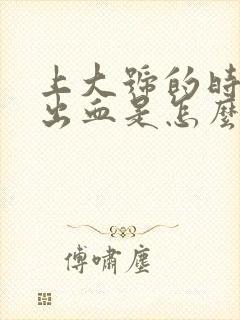 上大號的時
出血是怎麼
傅嘯塵